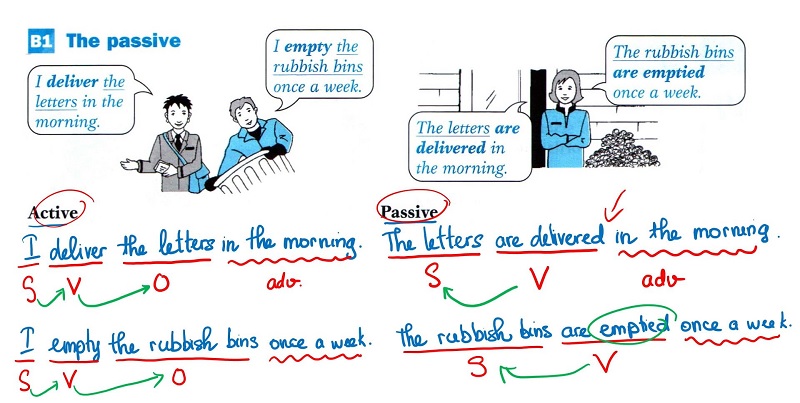 B1 The passive
I deliver the
letters in the
morning.
I empty the
rubbish bins
once a week.
The rubbish bins
are emptied
once a week.
The letters are
delivered in
the morning.
Active
I deliver the letters in the morning.
S V O adv.
I empty the rubbish bins once a week.
S V O
Passive
The letters are delivered in the morning.
S V adv
the rubbish bins are emptied once a week.
S V